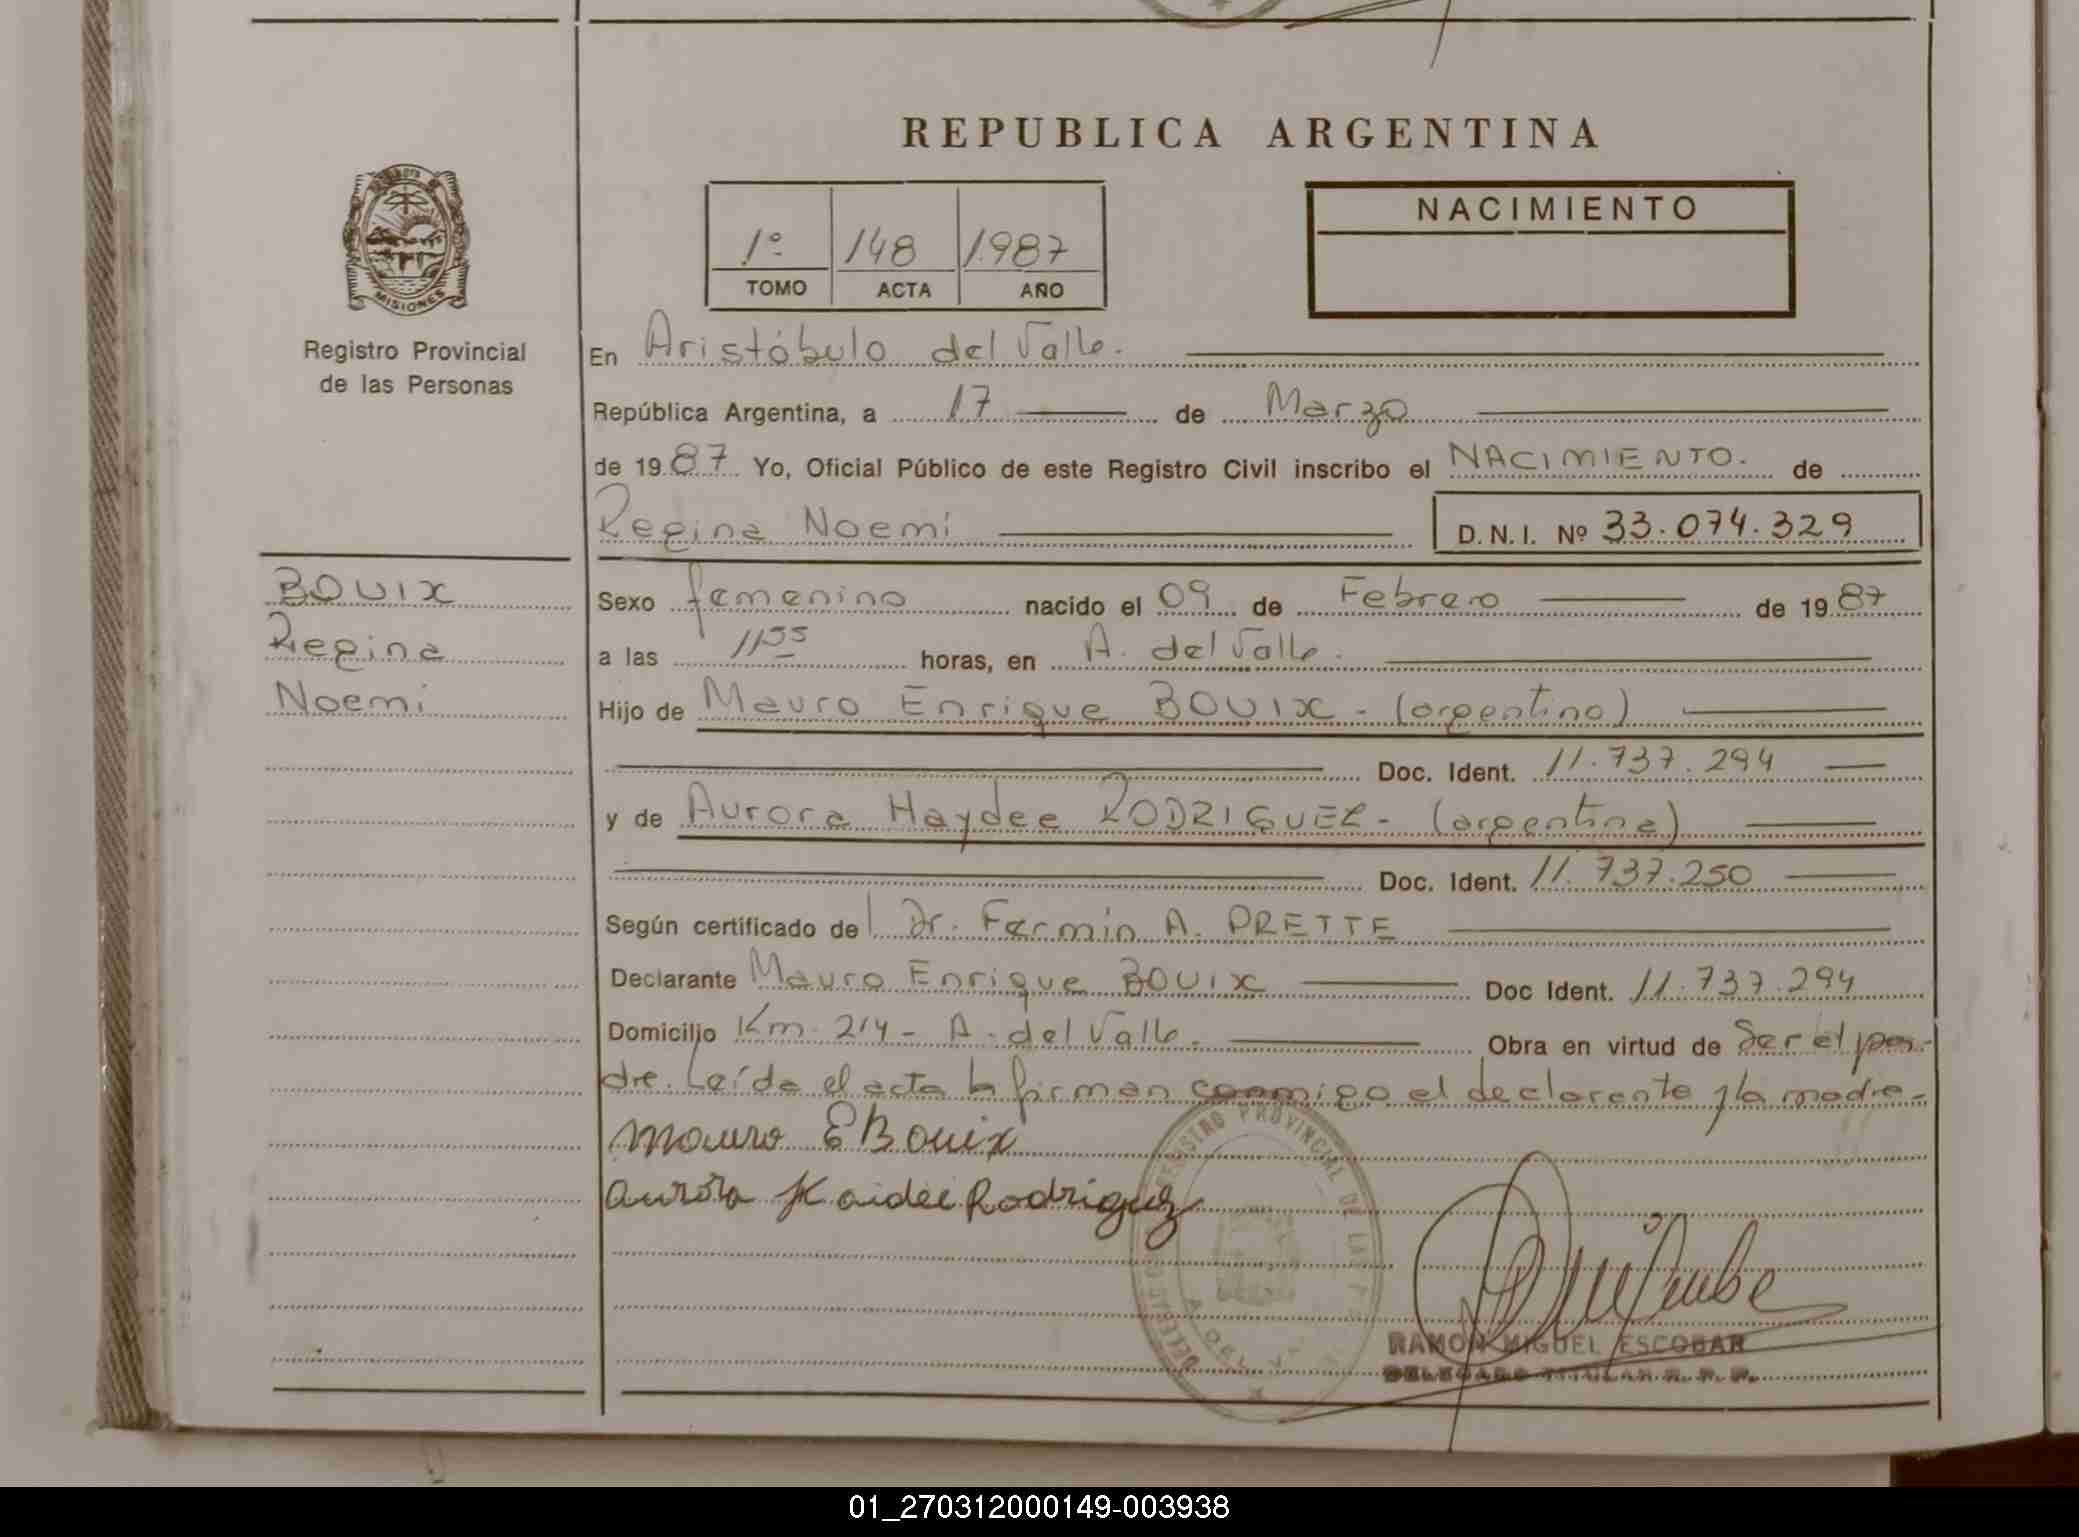 REPUBLICA ARGENTINA
MISIONES
Registro Provincial
de las Personas
1º 148 1.987
TOMO ACTA AÑO
NACIMIENTO
En Aristóbulo del Valle.
República Argentina, a 17 de Marzo
de 19 87 Yo, Oficial Público de este Registro Civil inscribo el NACIMIENTO. de
Regina Noemí D.N.I. Nº 33.074.329
BOUIX
Regina
Noemí
Sexo femenino nacido el 09 de Febrero de 19 87
a las 11 55 horas, en A. del Valle.
Hijo de Mauro Enrique BOUIX - (argentino)
Doc. Ident. 11.737.294
y de Aurora Haydee RODRIGUEZ - (argentina)
Doc. Ident. 11.737.250
Según certificado del Dr. Fermín A. PRETTE
Declarante Mauro Enrique BOUIX Doc Ident. 11.737.294
Domicilio Km. 214 - A. del Valle. Obra en virtud de Ser el pa-
dre. Leída el acta la firman conmigo el declarante y la madre-
Mauro E Bouix
Aurora Haidee Rodriguez
REGISTRO PROVINCIAL DE LAS
RAMON MIGUEL ESCOBAR
DELEGADO TITULAR R. P. P.
01_270312000149-003938